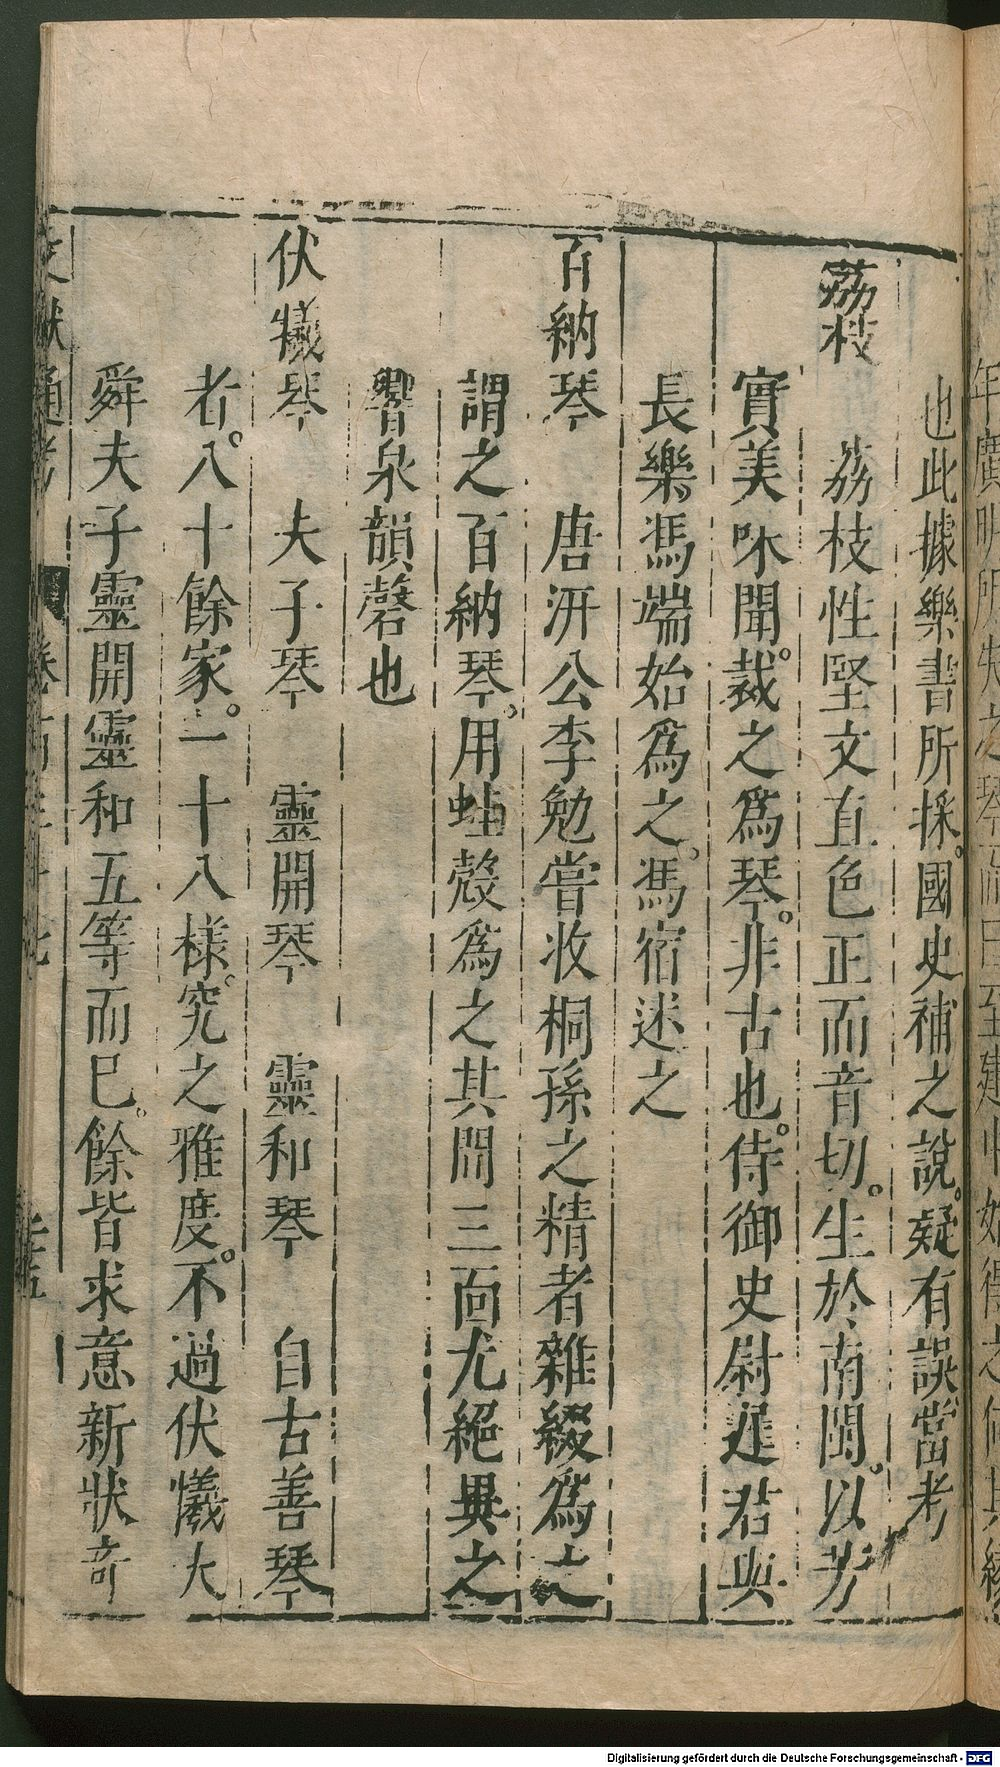 也此據樂書所採國史補之說疑有誤當考
荔枝　荔枝性堅文直色正而音切生於南閩以芳
實美味聞裁之為琴非古也侍御史尉遲君與
長樂馮端始為之馮宿述之
百納琴　唐汧公李勉嘗收桐孫之精者雜綴為之
謂之百納琴用蚌殼為之其間三面尤絕異之
響泉韻磬也
伏犧琴　夫子琴　靈開琴　靈和琴　自古善琴
者八十餘家一十八樣究之雅度不過伏犧大
舜夫子靈開靈和五等而巳餘皆求意新狀奇
文獻通考
Digitalisierung gefördert durch die Deutsche Forschungsgemeinschaft - DFG